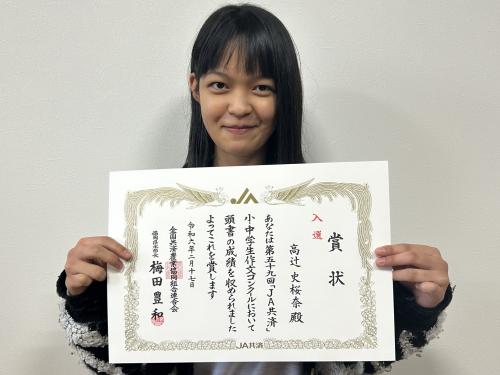 JA
賞状
入選
高辻史桜奈殿
あなたは第五十九回「JA共済」
小・中学生作文コンクールにおいて
頭書の成績を収められました
よってこれを賞します
令和六年二月十七日
全国共済農業協同組合連合会
福岡県本部長
梅田豊和
JA共済